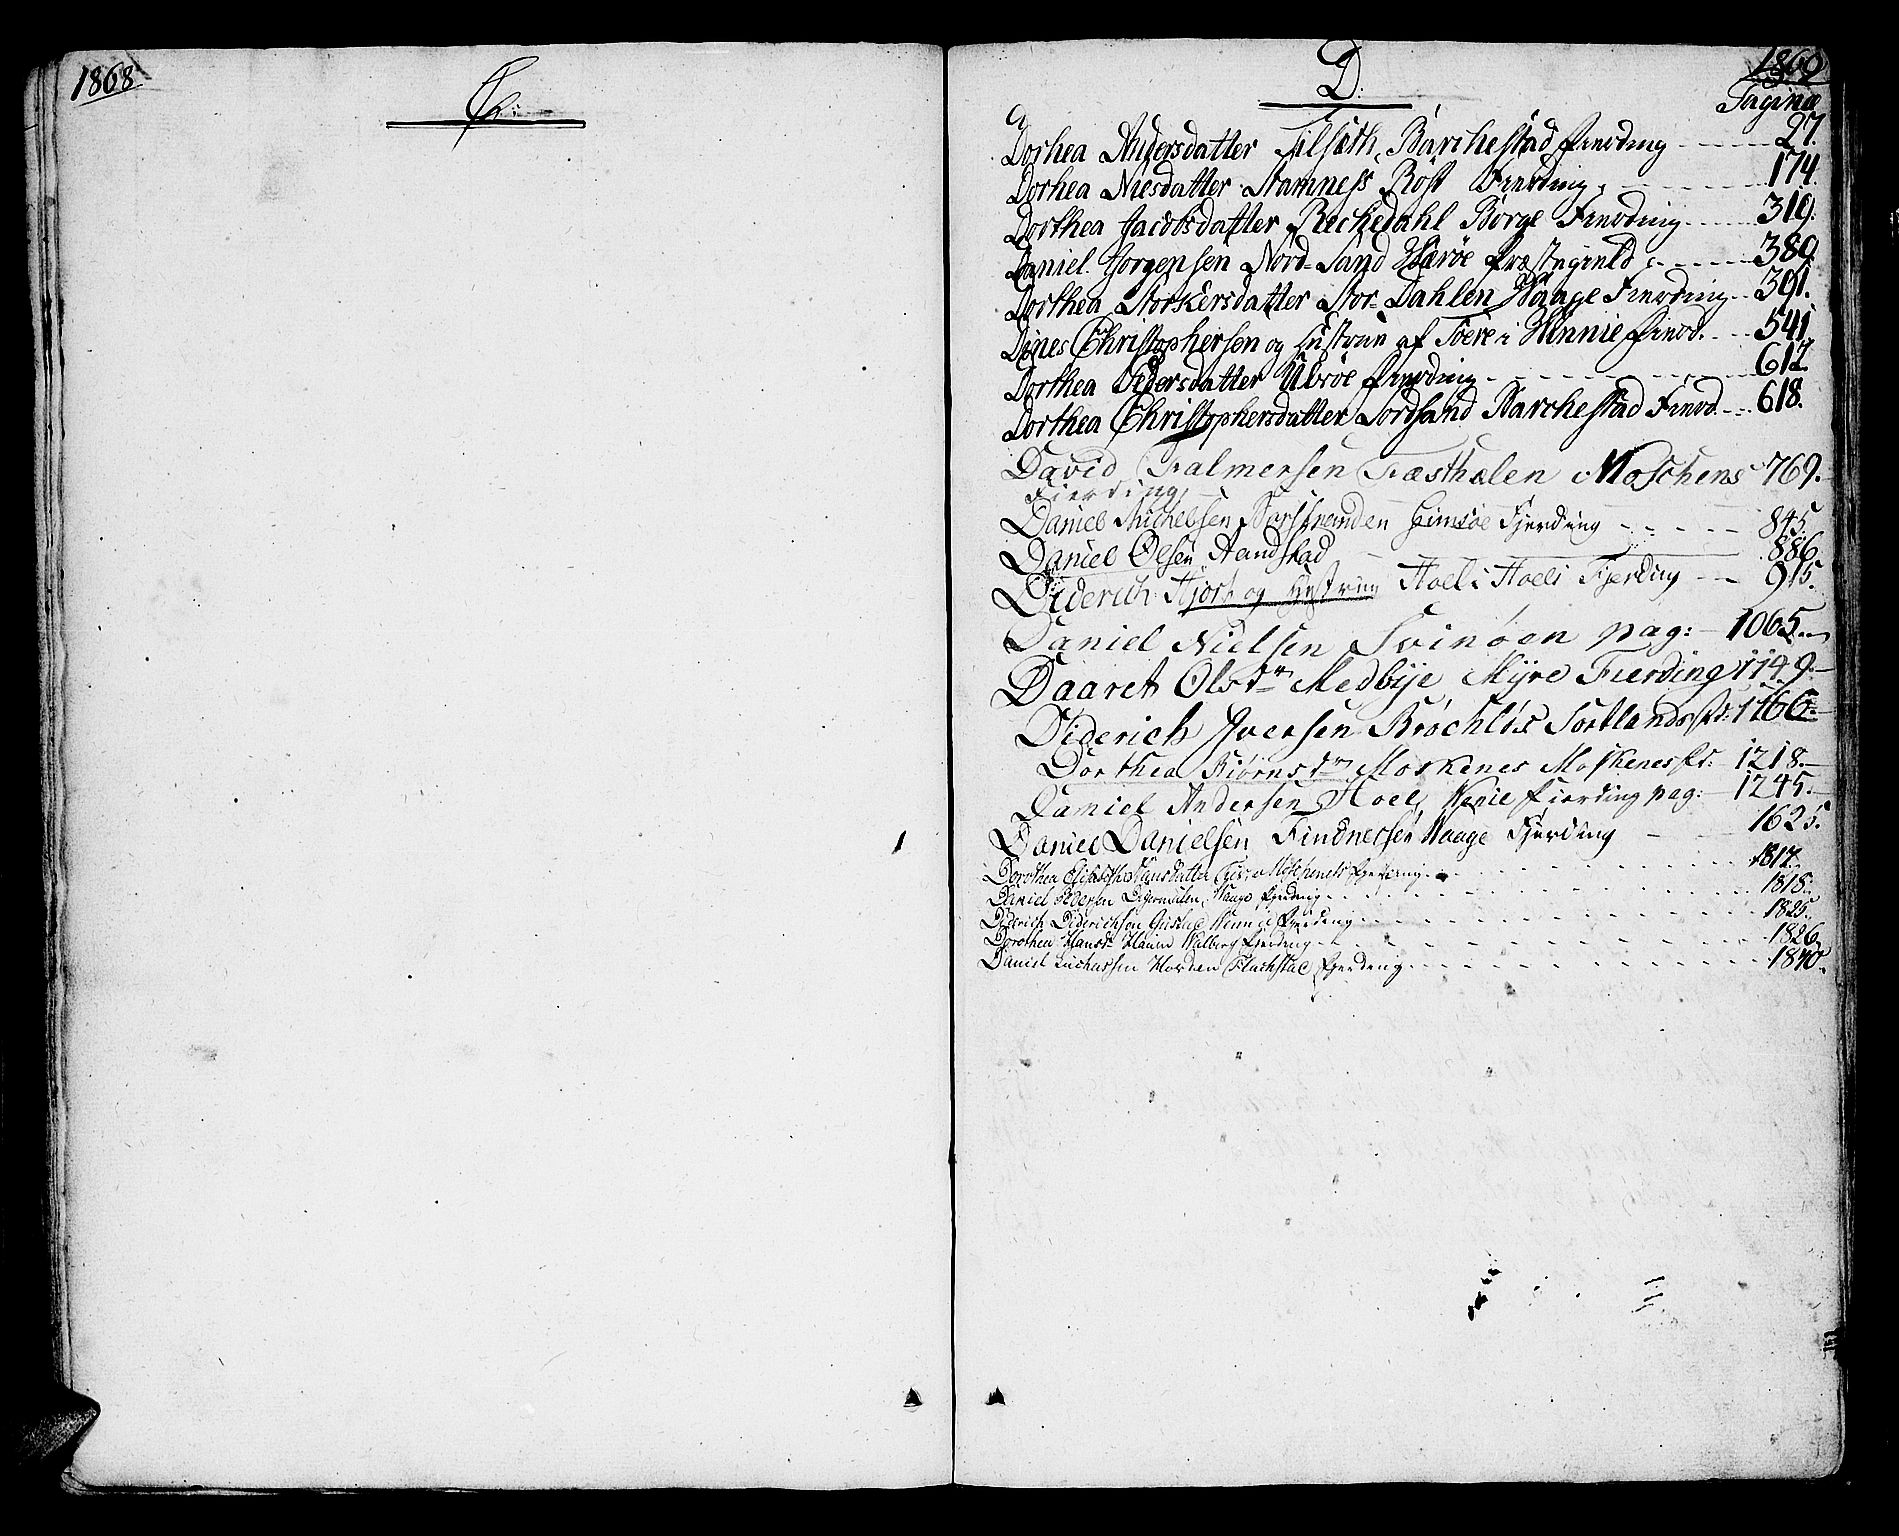 1868
C:
D:
1869
Paginæ
Dorthea Andersdatter Tilsæth, Barchestad fierding 27.
Dorhea Niesdatter Stamness Röst Fierding 174.
Dorthea Jacobsdatter Reckedahl Borge Fierding 319.
Daniel Jorgensen Nord-Sand Værøe Præstegield 389.
Dorthea Storkersdatter Stor-Dahlen Waage Fierding 391.
Dines Christophersen og Hustrue af i Wennie fierd. 541.
Dorthea Pedersdatter Ulvöe fierding 612.
Dorthea Christophersdatter Sordsand Barchestad Fierd. 618.
David Falmersen Fæsthælen Moschens 769.
Fierding
Daniel Michelsen Borstranden Gimsöe Fjerding 845.
Daniel Olsen Aandstad 886.
Diderich Hjort og Hustrue Hoel i Hoels Fjerding 915.
Daniel Nielsen Svinöen pag: 1065.
Daaret Olsdr Medbye Myre Fierding 1149.
Diderich Iversen Bröchlös Sortlands frd: 1166.
Dorthea Biörnsdr Moskenes Moskenes fd: 1218.
Daniel Andersen Hoel, Wenie fierding pag: 1245.
Daniel Danielsen Findnessen Waage Fjerding 1625.
Dorothea Elisabeth Hansdatter Moschenes fjerding 1817.
Daniel Pedersen Digermulen, Waage fjerding 1818.
Diderich Diderichsen Wennie fjerding 1825.
Dorothea Hansdr Walberg fjerding 1826.
Daniel Luchassen Horden Flachstad fjerding 1840.